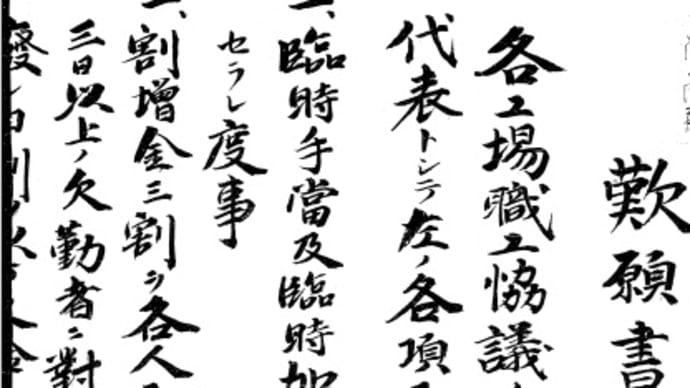 歎願書
各工場職工協議
代表トシテ左ノ各項
一、臨時手當及臨時加
セラレ度事
一、割増金三割ヲ各人
三日以上ノ欠勤者ニ對